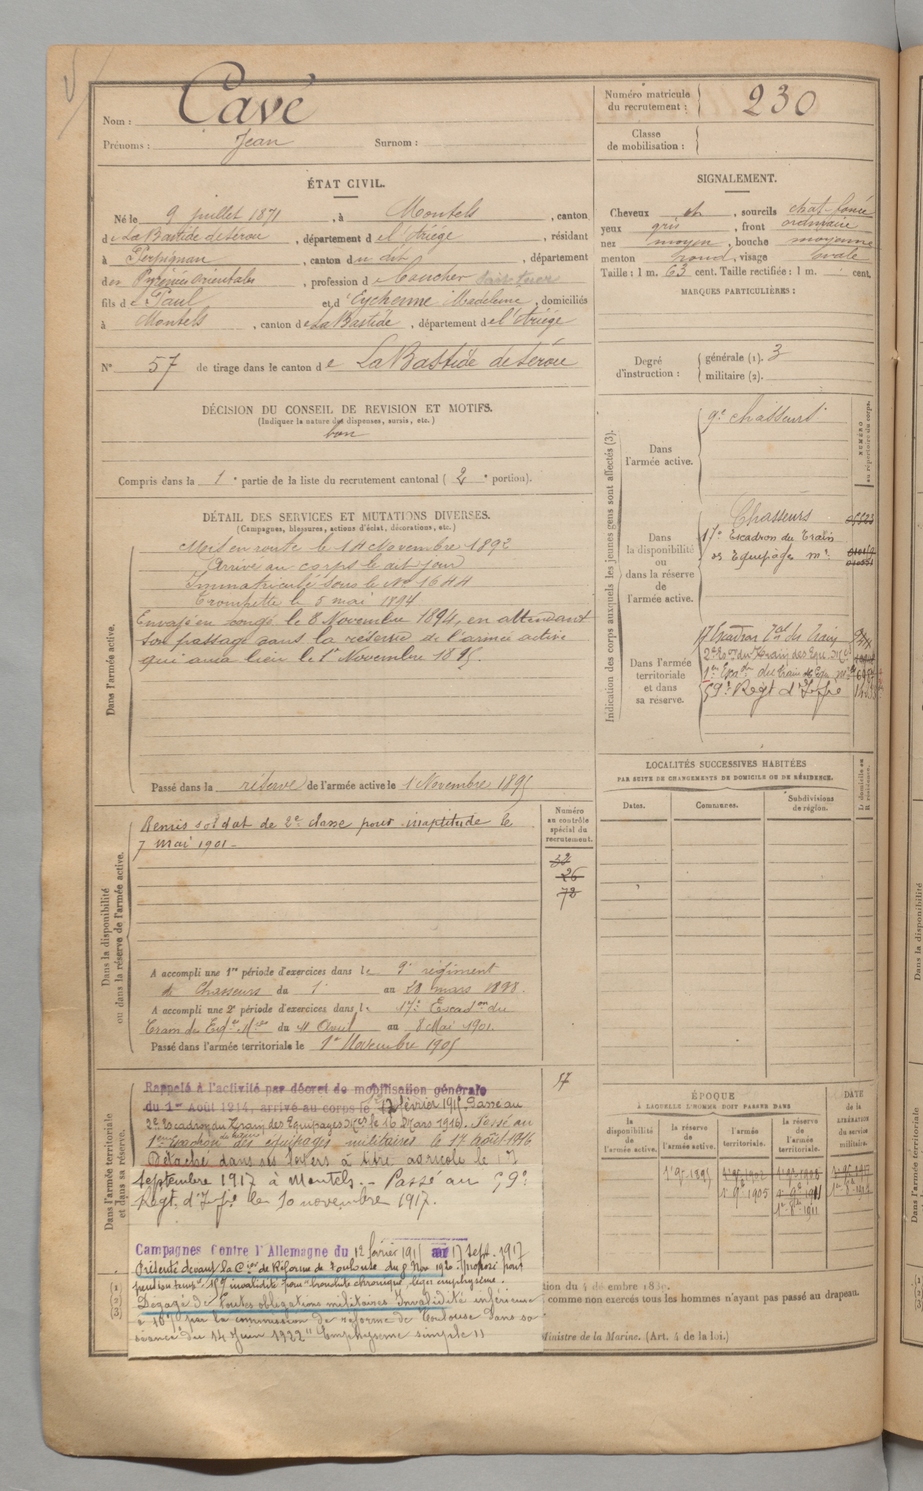 Nom : Cavé
Prénoms : Jean Surnom :
Numéro matricule du recrutement : 230
Classe de mobilisation :
ÉTAT CIVIL.
Né le 9 juillet 1871, à Montels, canton
de La Bastide de Sérou, département de l'Ariége, résidant
à Perpignan, canton du dit, département
des Pyrénées Orientales, profession de Boucher
fils de Paul et d'Eychenne Madeleine, domiciliés
à Montels, canton de La Bastide, département de l'Ariége
N° 57 de tirage dans le canton de La Bastide de Sérou
SIGNALEMENT.
Cheveux ch, sourcils
yeux gris, front ordinaire
nez moyen, bouche moyenne
menton rond, visage ovale
Taille : 1 m. 63 cent. Taille rectifiée : 1 m. cent.
MARQUES PARTICULIÈRES :
Degré d'instruction : générale (1). 3
militaire (2).
DÉCISION DU CONSEIL DE REVISION ET MOTIFS.
(Indiquer la nature des dispenses, sursis, etc.)
bon
Compris dans la 1e partie de la liste du recrutement cantonal (2e portion).
DÉTAIL DES SERVICES ET MUTATIONS DIVERSES.
(Campagnes, blessures, actions d'éclat, décorations, etc.)
Dans l'armée active.
Mis en route le 14 Novembre 1892
Arrivé au corps le dit jour
Immatriculé sous le No 1644
Trompette le 5 mai 1894
Envoyé en congé le 8 Novembre 1894, en attendant
son passage dans la réserve de l'armée active
qui aura lieu le 1er Novembre 1895.
Passé dans la réserve de l'armée active le 1 Novembre 1895
Indication des corps auxquels les jeunes gens sont affectés (3).
NUMÉRO au répertoire du corps.
Dans l'armée active.
9e chasseurs
Dans la disponibilité ou dans la réserve de l'armée active.
Chasseurs
17e Escadron du Train
des Equipages mres
Dans l'armée territoriale et dans sa réserve.
17 Escadron Tal du Train
2e Eon du Train des Equ. Mes
1er Escon du train des Equ. Mres
59e Regt d'Infie
LOCALITÉS SUCCESSIVES HABITÉES
PAR SUITE DE CHANGEMENTS DE DOMICILE OU DE RÉSIDENCE.
Dates. Communes. Subdivisions de région.
Dans la disponibilité ou dans la réserve de l'armée active.
Remis soldat de 2e classe pour inaptitude le
7 mai 1901.
Numéro au contrôle spécial du recrutement.
26
72
A accompli une 1re période d'exercices dans le 9e régiment
de Chasseurs du 1er au 28 mars 1898.
A accompli une 2e période d'exercices dans le 17e Escadon du
Train des Eqes Mres du 11 Avril au 8 Mai 1901
Passé dans l'armée territoriale le 1er Novembre 1905
57
Dans l'armée territoriale et dans sa réserve.
Rappelé à l'activité par décret de mobilisation générale
du 1er Août 1914, arrivé au corps le 12 février 1915. Passé au
2e Escadron du Train des Equipages Mres le 16 Mars 1916. Passé au
1er Escadron des équipages militaires le 17 août 1916
Détaché dans ses foyers à titre agricole le 17
septembre 1917 à Montels. - Passé au 59e
Regt. d'Infie le 10 novembre 1917.
Campagnes Contre l'Allemagne du 12 février 1915 au 17 sept. 1917
Présenté devant la Cion de Réforme de Toulouse du 8 Nov 1920. Proposé pour
invalidité pour bronchite chronique, emphysème.
Dégagé de toutes obligations militaires Invalidité inférieure
à 10% par la commission de réforme de Toulouse dans sa
séance du 14 Juin 1922 "Emphysème simple"
ÉPOQUE
À LAQUELLE L'HOMME DOIT PASSER DANS
la disponibilité de l'armée active. la réserve de l'armée active. l'armée territoriale. la réserve de l'armée territoriale.
DATE de la LIBÉRATION du service militaire.
comme non exercés tous les hommes n'ayant pas passé au drapeau.
Ministre de la Marine. (Art. 4 de la loi.)